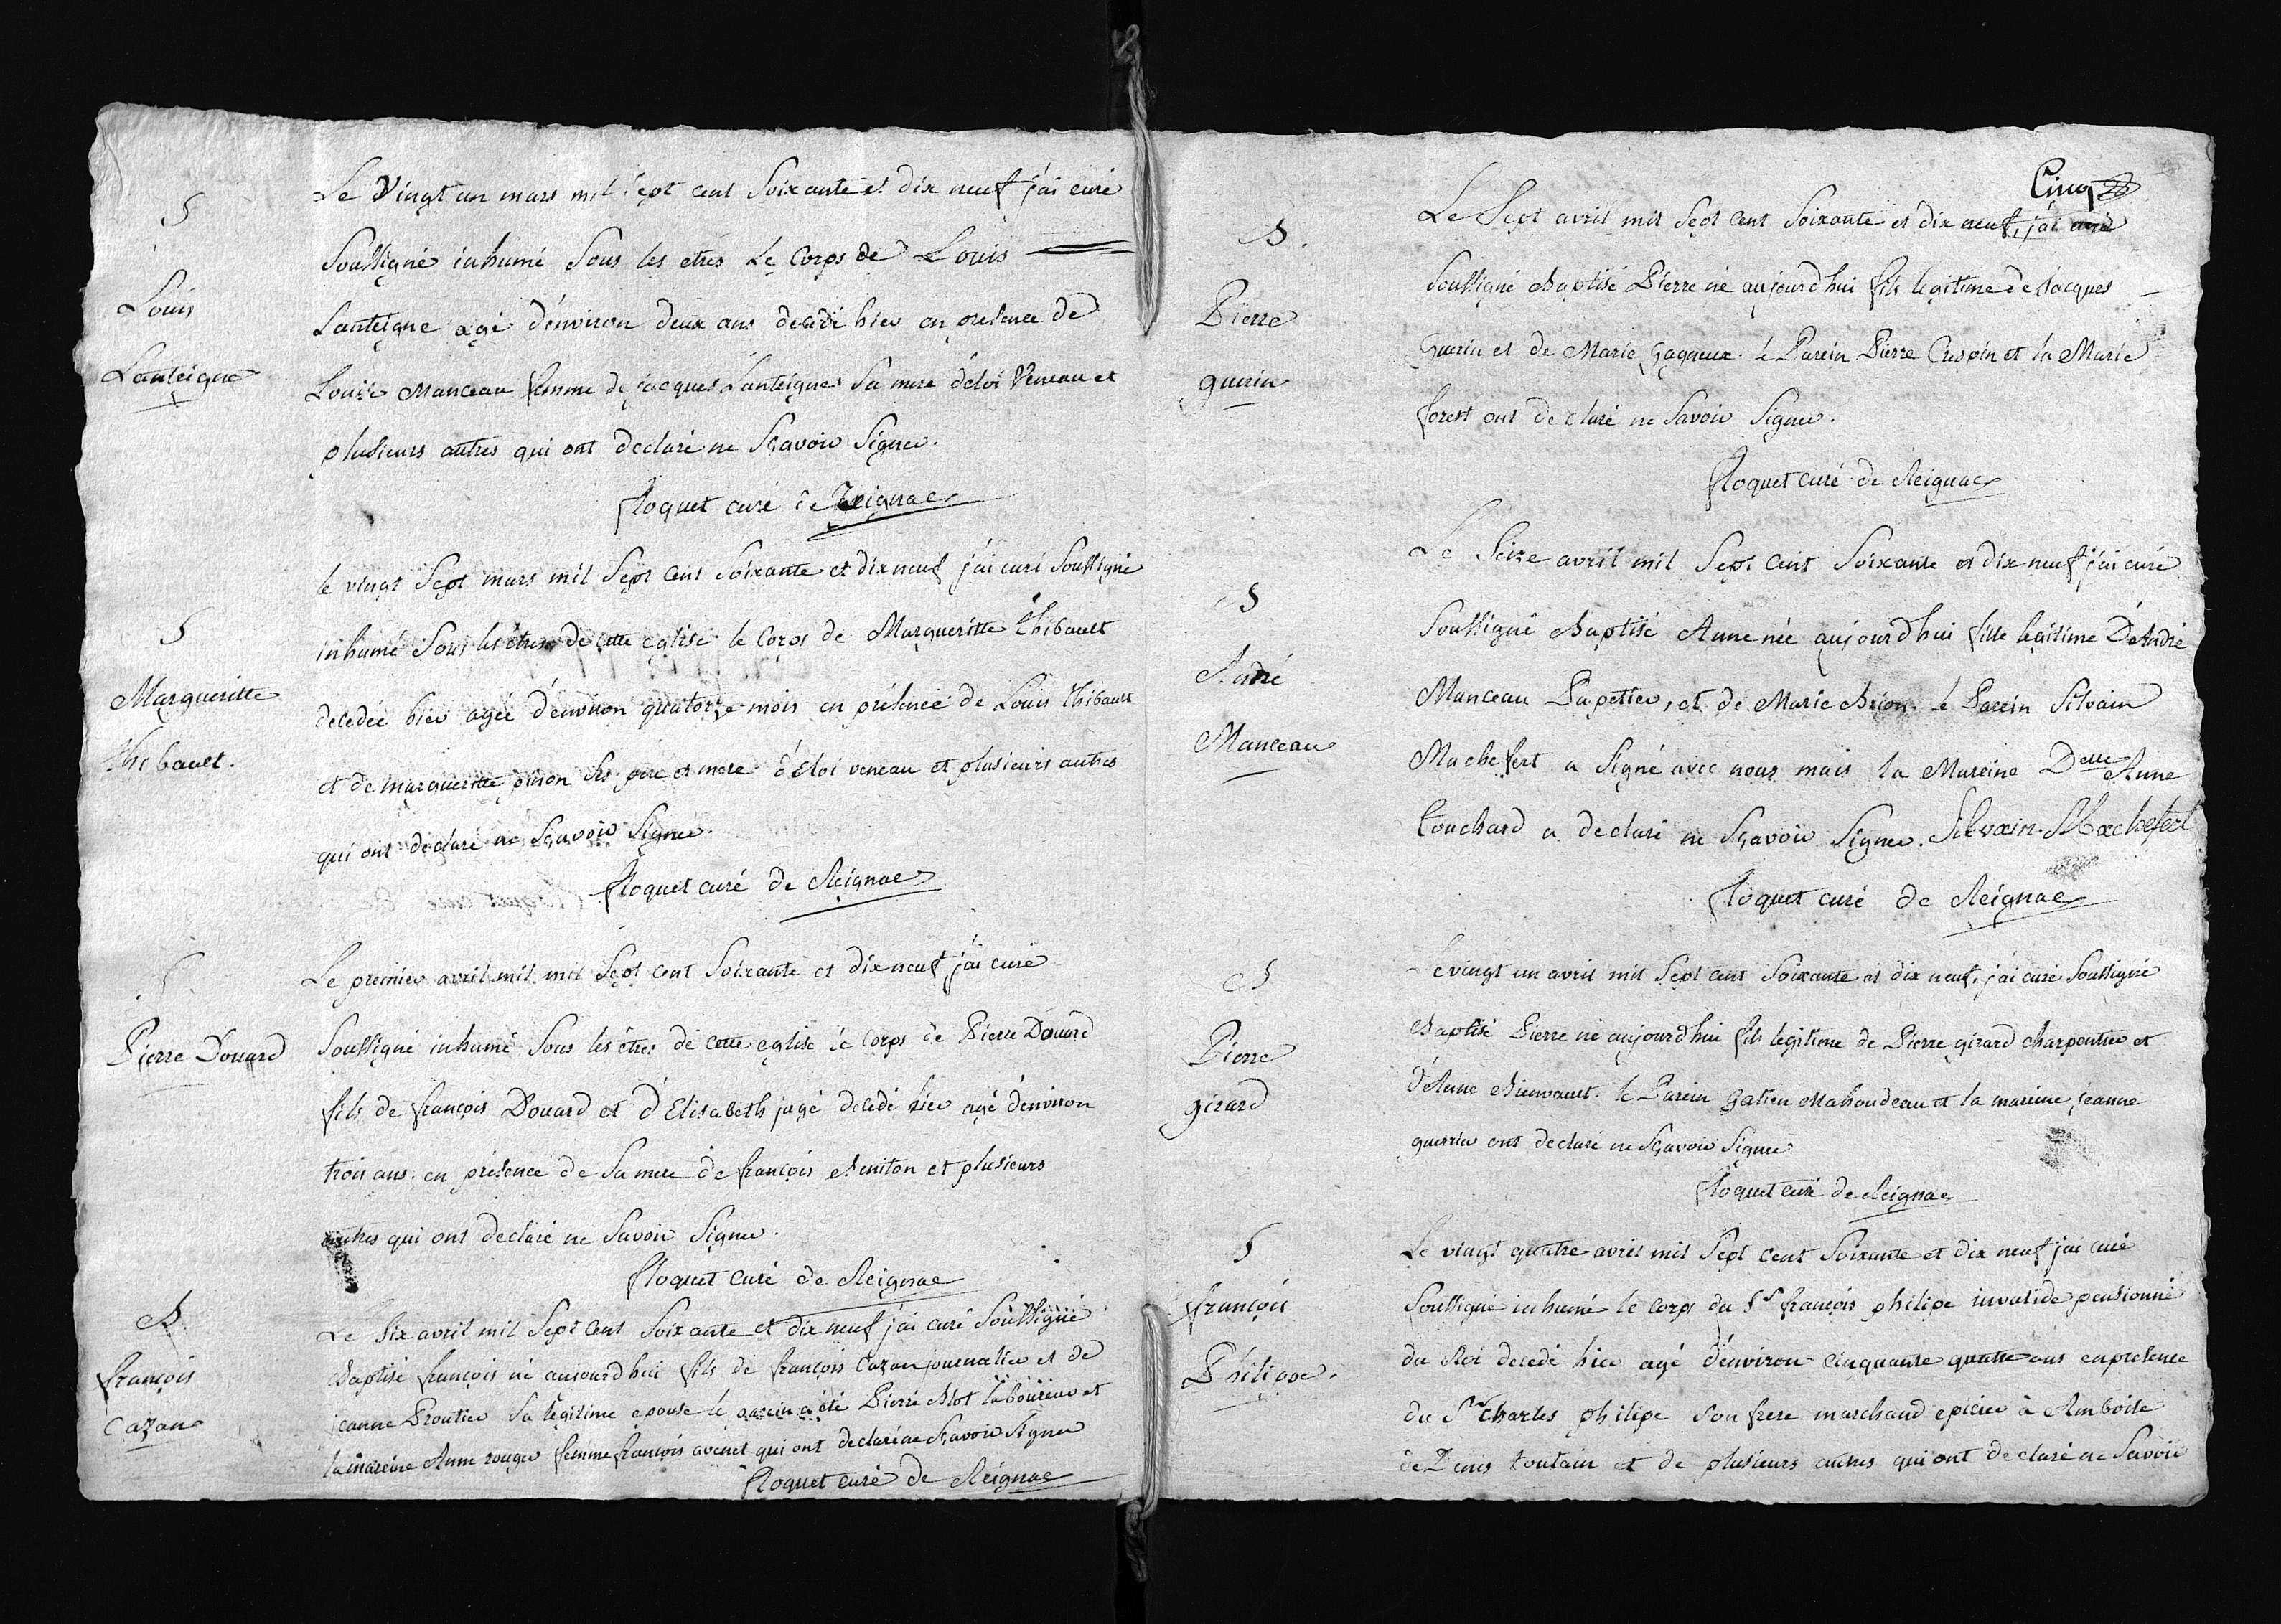 S
Louis
Lanteigne
Le Vingt un mars mil sept cent Soixante et dix neuf j'ai curé
Soussigné inhumé Sous les etres Le Corps de Louis
Lanteigne agé d'environ deux ans decedé hier en presence de
Louise Manceau femme de jacques Lanteigne Sa mere d'eloi Veneau et
plusieurs autres qui ont declaré ne Sçavoir Signer.
floquet curé de Reignac
S
Margueritte
thibault.
le vingt Sept mars mil Sept Cent Soixante et dix neuf j'ai curé Soussigné
inhumé Sous les êtres de cette eglise le Corps de Margueritte thibault
decedée hier agée d'environ quatorze mois en présence de Louis thibault
et de margueritte pinon Ses pere et mere d'Eloi veneau et plusieurs autres
qui ont declaré ne Sçavoir Signer.
floquet curé de Reignac
S.
Pierre Douard
Le premier avril mil mil Sept cent Soixante et dix neuf j'ai curé
Soussigné inhumé Sous les êtres de cette eglise le Corps de Pierre Douard
fils de françois Douard et d'Elisabeth jugé decedé hier agé d'environ
trois ans. en présence de Sa mere de françois Beniton et plusieurs
autres qui ont declaré ne Savoir Signer.
floquet Curé de Reignac
B
françois
Cazan
Le Six avril mil Sept cent Soixante et dix neuf j'ai curé Soussigné
Baptisé françois né aujourd'hui fils de françois Cazan journalier et de
jeanne Proutier Sa legitime epouse le parein a été Pierre Blot laboureur et
la mareine Anne rouger femme françois avenet qui ont declaré ne Sçavoir Signer
floquet curé de Reignac
Cinq
B.
Pierre
guerin
Le Sept avril mil Sept Cent Soixante et dix neuf, j'ai curé
Soussigné Baptisé Pierre né aujourd'hui fils legitime de Jacques
Guerin et de Marie Gagneux. le Parein Pierre Crespin et la Marie
forest ont declaré ne Savoir Signer.
floquet curé de Reignac
B
André
Manceau
Le Seize avril mil Sept Cent Soixante et dix neuf j'ai curé
Soussigné Baptisé Anne née aujourd'hui fille legitime D'André
Manceau Papetier, et de Marie Brion. le Parein Silvain
Machefert a Signé avec nous mais la Mareine Delle Anne
Touchard a declaré ne Sçavoir Signer. Silvain. Machefert
floquet curé de Reignac
B
Pierre
girard
Le vingt un avril mil Sept cent Soixante et dix neuf, j'ai curé Soussigné
Baptisé Pierre né aujourd'hui fils legitime de Pierre girard Charpentier et
d'Anne Bienvault. le Parein Gatien Mahoudeau et la mareine jeanne
guerrin ont declaré ne Sçavoir Signer
floquet curé de Reignac
S
françois
Philipe.
Le vingt quatre avril mil Sept Cent Soixante et dix neuf j'ai curé
Soussigné inhumé le Corps du Sr françois philipe invalide pensionné
du Roi decedé hier agé d'environ Cinquante quatre ans en presence
du Sr Charles philipe Son frere marchand epicier à Amboise
de Denis toutain et de plusieurs autres qui ont declaré ne Savoir